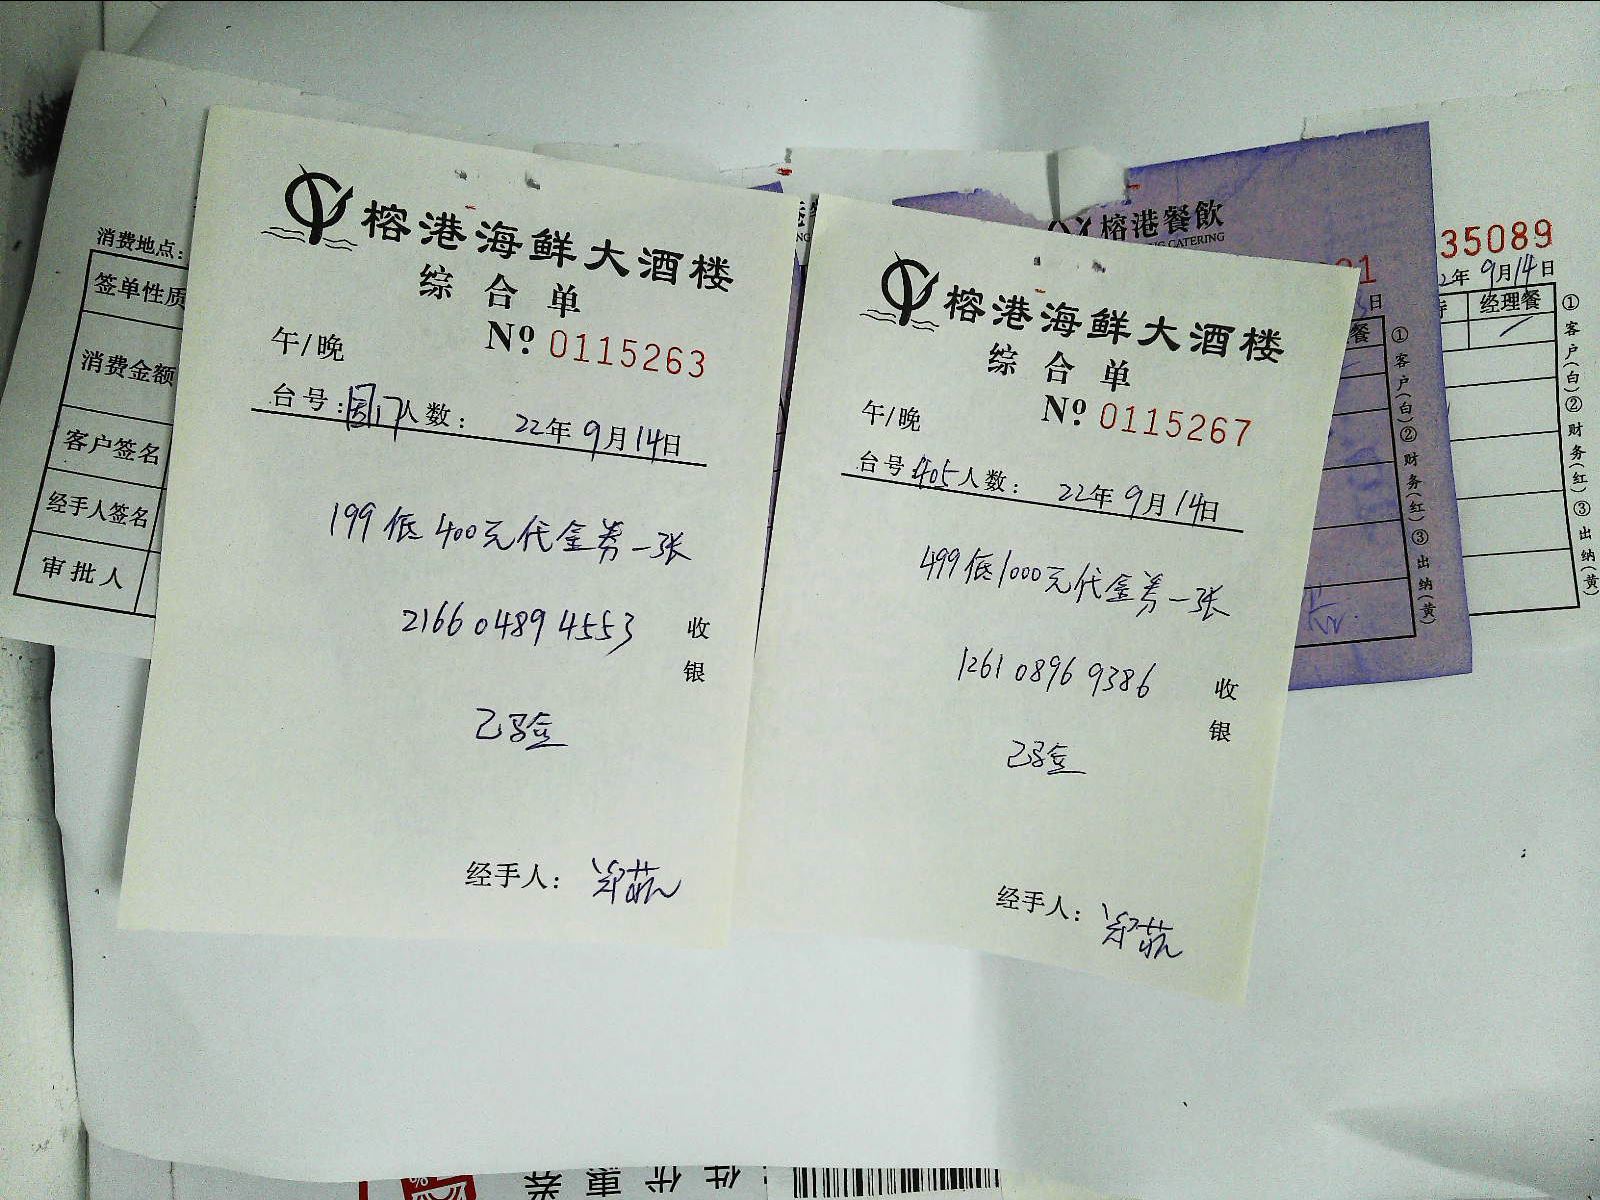 榕港海鲜大酒楼
综合单
午/晚
Nº 0115263
台号: 人数: 22年9月14日
199低400元代金券一张
2166 0489 4553
收银
已验
经手人:
榕港海鲜大酒楼
综合单
午/晚
Nº 0115267
台号 405 人数: 22年9月14日
499低1000元代金券一张
1261 0896 9386
收银
已验
经手人:
消费地点:
签单性质
消费金额
客户签名
经手人签名
审批人
榕港餐飲
CATERING
1
日
餐
①客户(白)②财务(红)③出纳(黄)
35089
年9月14日
经理餐
①客户(白)②财务(红)③出纳(黄)
件优惠券